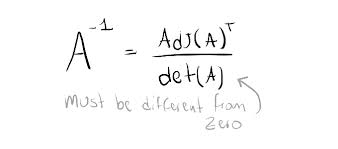 A⁻¹ = Adj(A)ᵀ / det(A)
Must be different from
zero